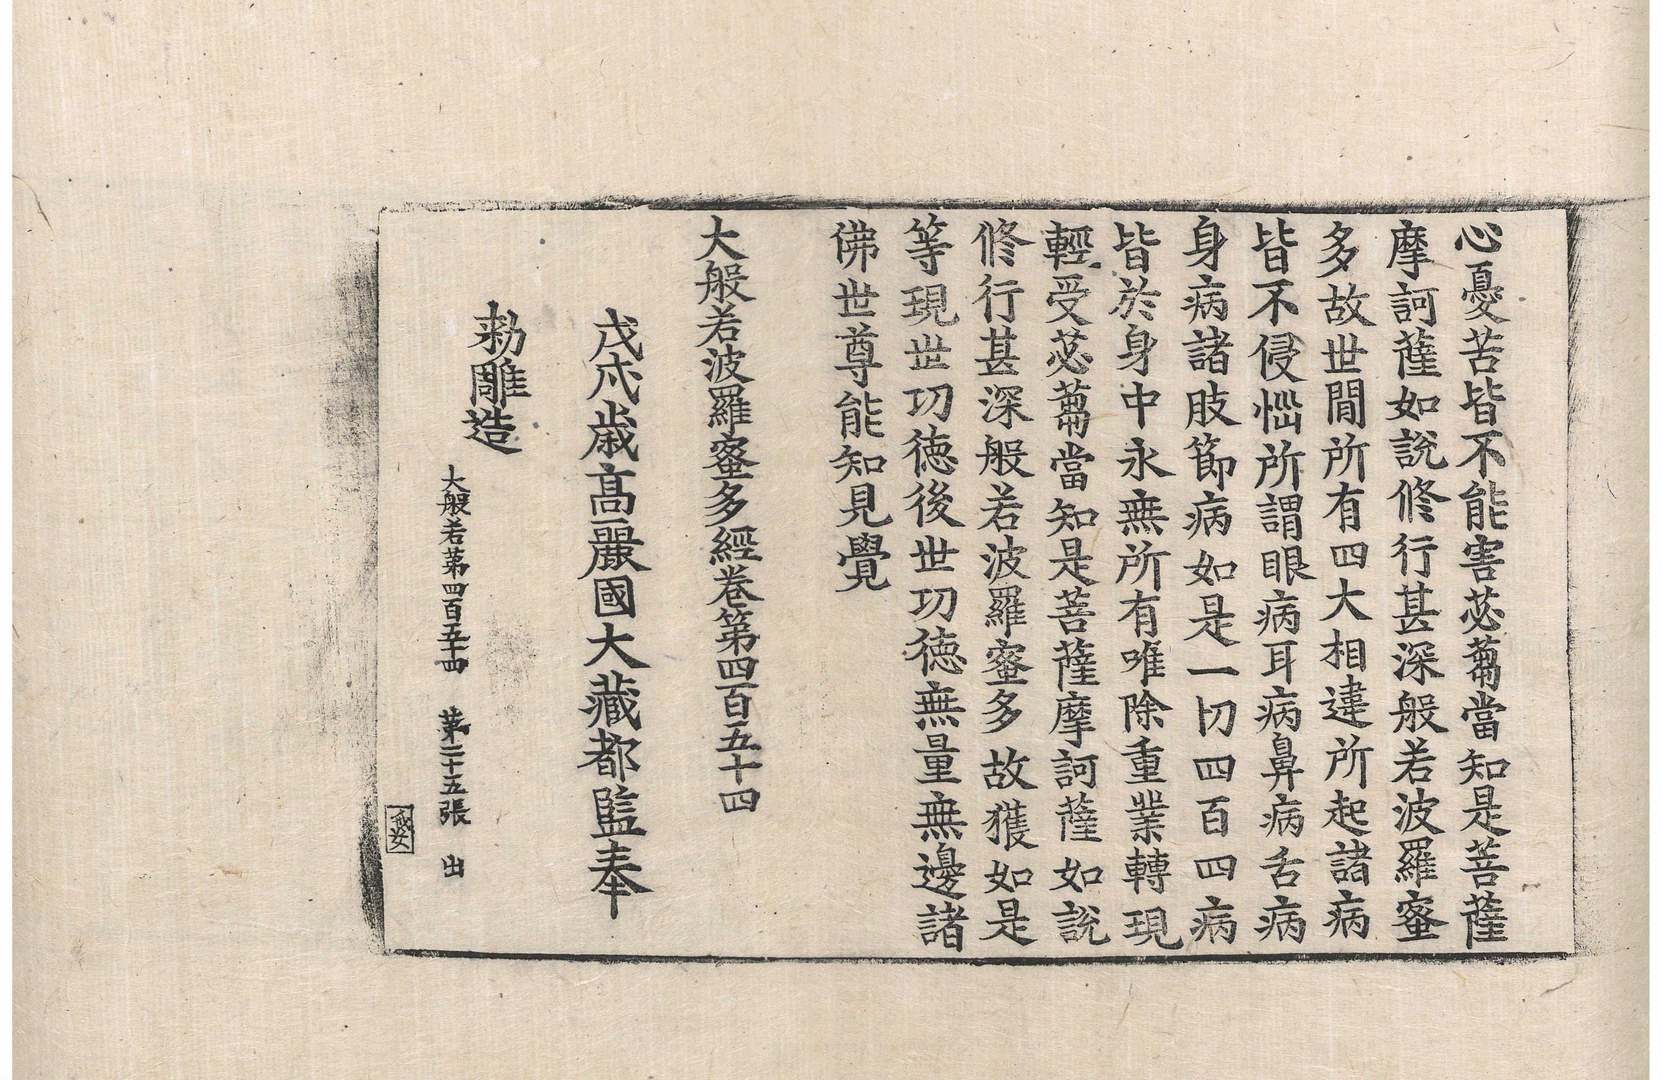 心憂苦皆不能害苾蒭當知是菩薩
摩訶薩如說修行甚深般若波羅蜜
多故世閒所有四大相違所起諸病
皆不侵惱所謂眼病耳病鼻病舌病
身病諸肢節病如是一切四百四病
皆於身中永無所有唯除重業轉現
輕受苾蒭當知是菩薩摩訶薩如說
修行甚深般若波羅蜜多故獲如是
等現世功德後世功德無量無邊諸
佛世尊能知見覺
大般若波羅蜜多經卷第四百五十四
戊戌歲高麗國大藏都監奉
勅雕造
大般若第四百五十四 第二十五張 出